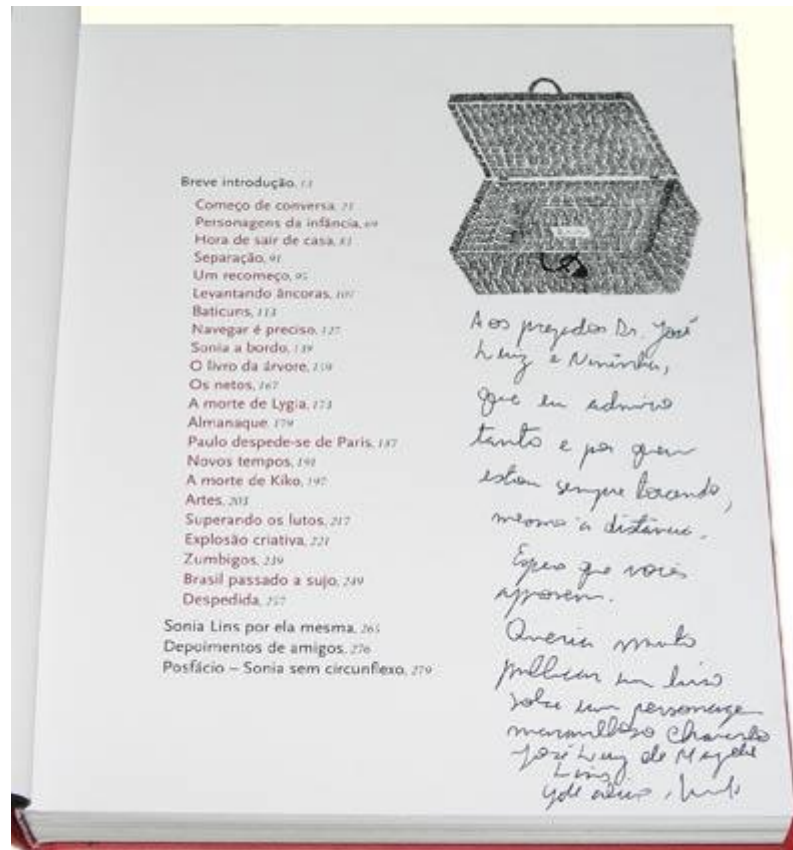 Breve introdução, 13
Começo de conversa, 21
Personagens da infância, 69
Hora de sair de casa, 83
Separação, 91
Um recomeço, 95
Levantando âncoras, 107
Baticuns, 113
Navegar é preciso, 127
Sonia a bordo, 139
O livro da árvore, 159
Os netos, 167
A morte de Lygia, 173
Almanaque, 179
Paulo despede-se de Paris, 187
Novos tempos, 191
A morte de Kiko, 197
Artes, 203
Superando os lutos, 217
Explosão criativa, 221
Zumbigos, 239
Brasil passado a sujo, 249
Despedida, 257
Sonia Lins por ela mesma, 265
Depoimentos de amigos, 276
Posfácio – Sonia sem circunflexo, 279
Aos prezados Dr. José
Luiz e Nininha,
que eu admiro
tanto e por quem
estou sempre
mesmo à distância.
Espero que vocês
aprovem.
Queria muito
publicar um livro
sobre um personagem
maravilhoso chamado
José Luiz de Magalhães
Lins